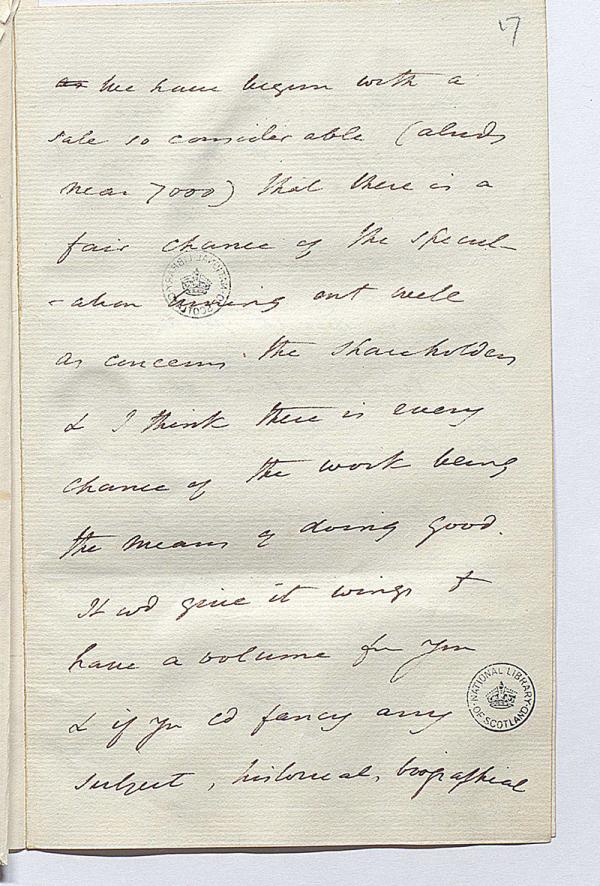 17
as we have begun with a
sale so considerable (already
near 7000) that there is a
fair chance of the specul-
-ation turning out well
as concerns the shareholders
& I think there is every
chance of the work being
the means of doing good.
It wd give it wings to
have a volume fm you
& if you cd fancy any
subject, historical, biographical
NATIONAL LIBRARY OF SCOTLAND
NATIONAL LIBRARY OF SCOTLAND